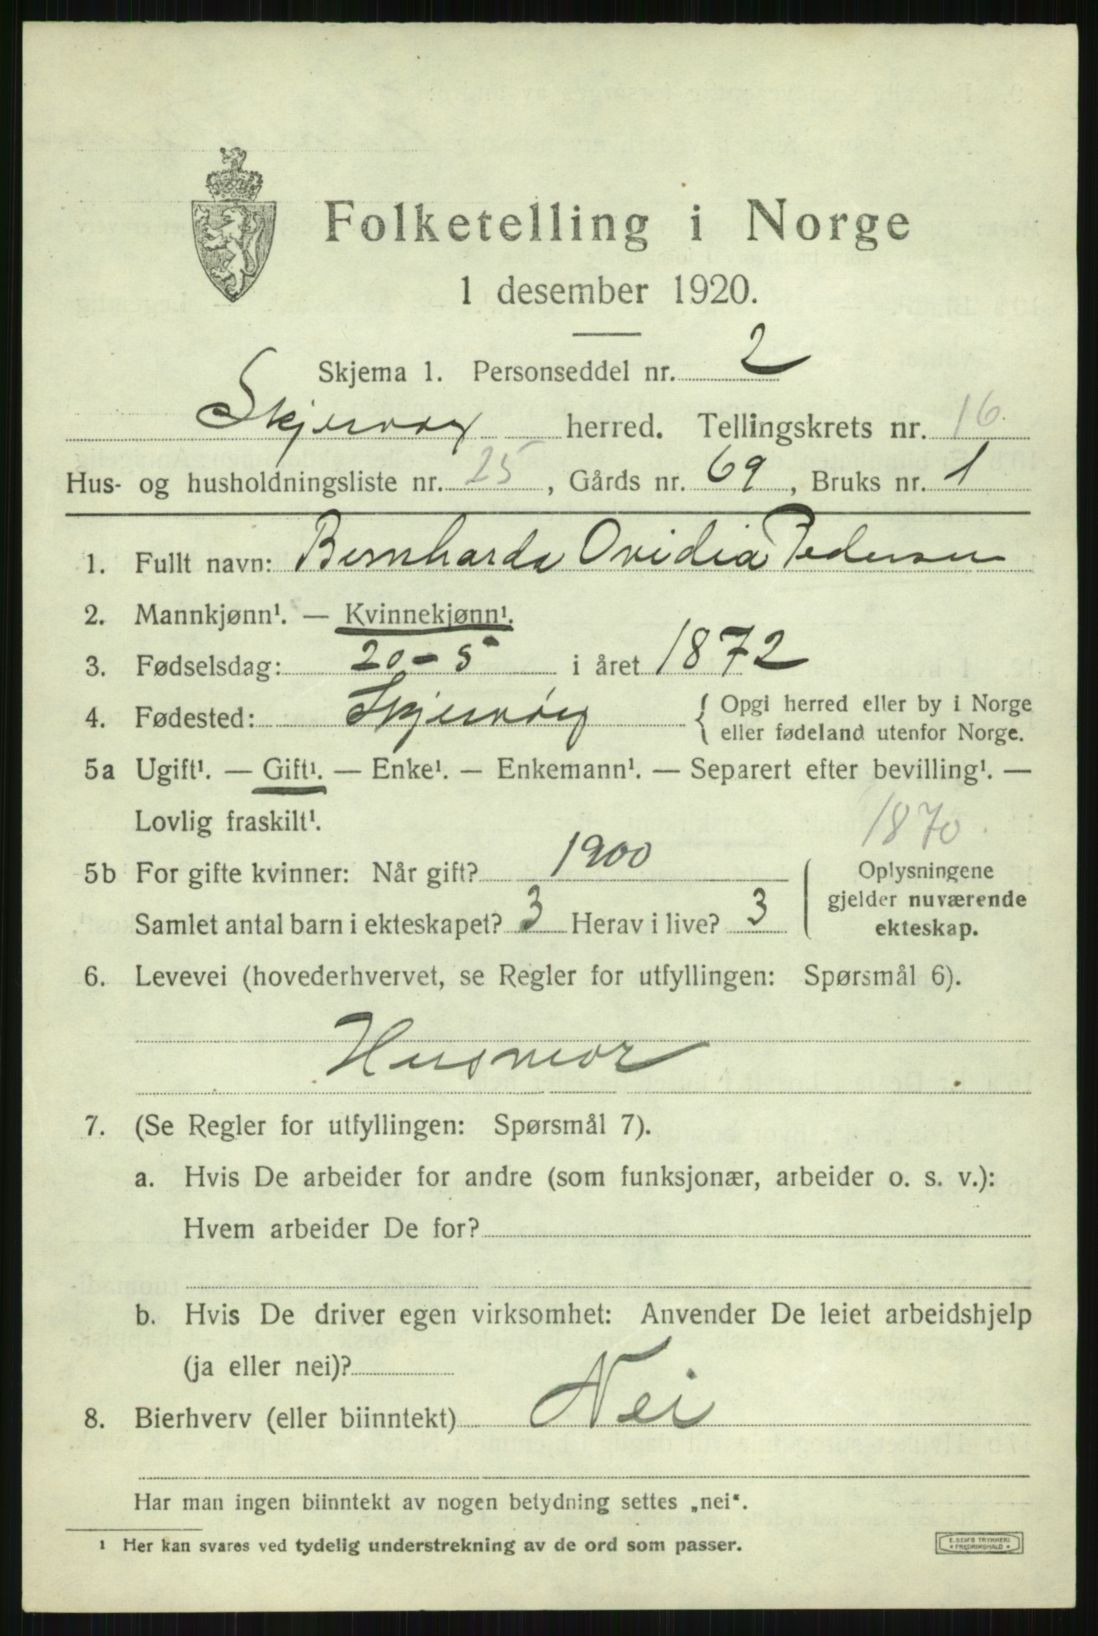 Folketelling i Norge
1 desember 1920.
Skjema 1. Personseddel nr. 2
Skjervøy herred. Tellingskrets nr. 16.
Hus- og husholdningsliste nr. 25, Gårds nr. 69, Bruks nr. 1
1. Fullt navn: Bernharda Ovidia Pedersen
2. Mannkjønn¹. — Kvinnekjønn¹.
3. Fødselsdag: 20-5 i året 1872
4. Fødested: Skjervøy { Opgi herred eller by i Norge
eller fødeland utenfor Norge.
5a Ugift¹. — Gift¹. — Enke¹. — Enkemann¹. — Separert efter bevilling¹. —
Lovlig fraskilt¹. 1870.
5b For gifte kvinner: Når gift? 1900 Oplysningene
gjelder nuværende
Samlet antal barn i ekteskapet? 3 Herav i live? 3 ekteskap.
6. Levevei (hovederhvervet, se Regler for utfyllingen: Spørsmål 6).
Husmor
7. (Se Regler for utfyllingen: Spørsmål 7).
a. Hvis De arbeider for andre (som funksjonær, arbeider o. s. v.):
Hvem arbeider De for?
b. Hvis De driver egen virksomhet: Anvender De leiet arbeidshjelp
(ja eller nei)?
8. Bierhverv (eller biinntekt) Nei
Har man ingen biinntekt av nogen betydning settes „nei“.
¹ Her kan svares ved tydelig understrekning av de ord som passer.
E. SEMS TRYKKERI
FREDRIKSHALD